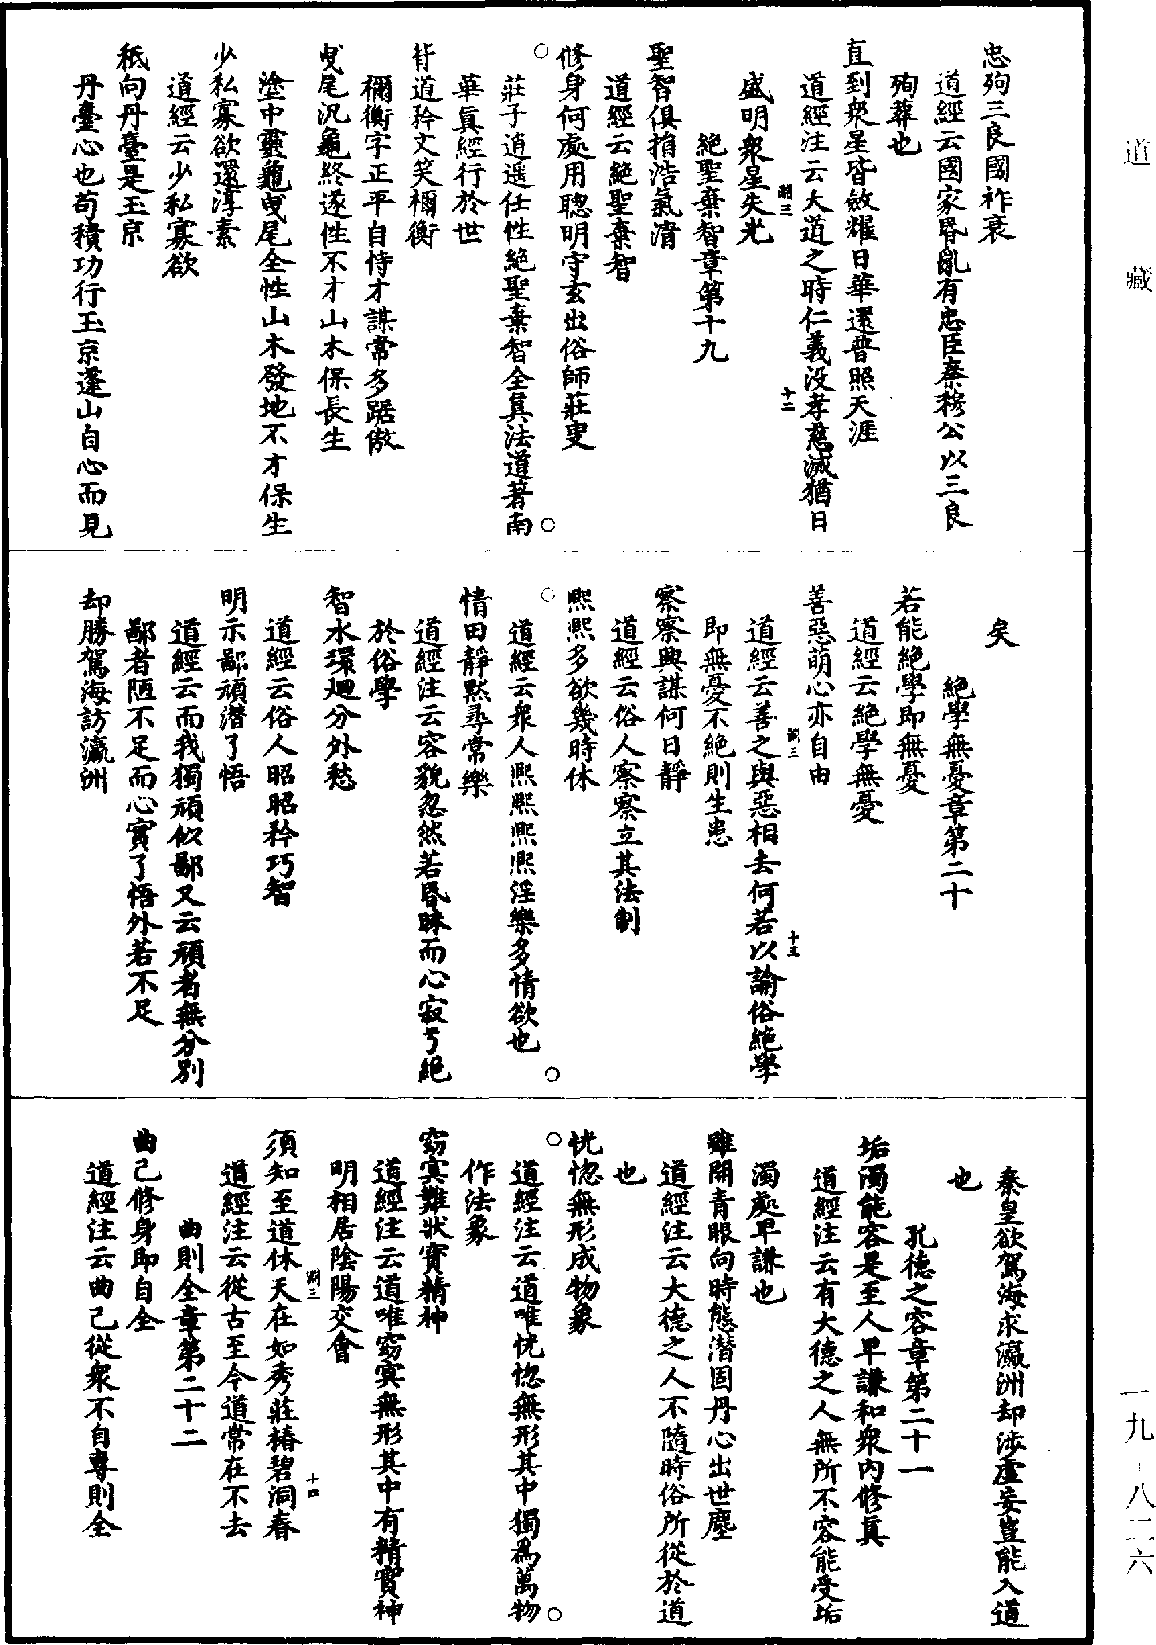 道藏
忠殉三良國祚衰
道經云國家昏亂有忠臣秦穆公以三良
殉葬也
直到衆星皆斂耀日華還普照天涯
道經注云大道之時仁義没孝慈滅猶日
盛明衆星失光
淵三
十二
絶聖棄智章第十九
聖智俱捐浩氣清
道經云絶聖棄智
修身何處用聰明守玄出俗師莊叟
莊子逍遥任性絶聖棄智全真法道著南
華真經行於世
背道矜文笑禰衡
禰衡字正平自恃才謀常多踞傲
曳尾汎龜終遂性不才山木保長生
塗中靈龜曳尾全性山木發地不才保生
少私寡欲還淳素
道經云少私寡欲
秖向丹臺是玉京
丹臺心也苟積功行玉京蓬山自心而見
矣
絶學無憂章第二十
若能絶學即無憂
道經云絶學無憂
善惡萌心亦自由
道經云善之與惡相去何若以論俗絶學
即無憂不絶則生患
淵三
十三
察察興謀何日靜
道經云俗人察察立其法制
熙熙多欲幾時休
道經云衆人熙熙熙熙淫樂多情欲也
情田靜默尋常樂
道經注云容貌忽然若昏昧而心寂亏絶
於俗學
智水環迴分外愁
道經云俗人昭昭矜巧智
明示鄙頑潛了悟
道經云而我獨頑似鄙又云頑者無分别
鄙者陋不足而心實了悟外若不足
却勝駕海訪瀛洲
秦皇欲駕海求瀛洲却涉虚妄豈能入道
也
孔德之容章第二十一
垢濁能容是至人早謙和衆内修真
道經注云有大德之人無所不容能受垢
濁處早謙也
雖開青眼向時態潛固丹心出世塵
道經注云大德之人不隨時俗所從於道
也
恍惚無形成物象
道經注云道唯恍惚無形其中獨爲萬物
作法象
窈冥難狀實精神
道經注云道唯窈冥無形其中有精實神
明相居陰陽交會
須知至道休天在如秀莊椿碧洞春
淵三
十四
道經注云從古至今道常在不去
曲則全章第二十二
曲己修身即自全
道經注云曲己從衆不自專則全
一九-八二六